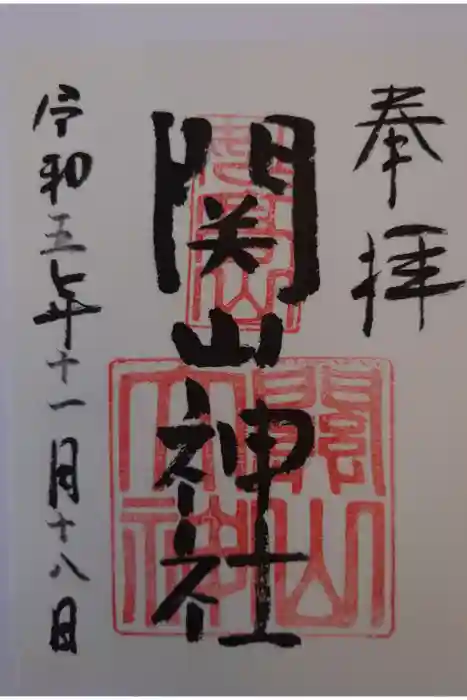 奉拝
関山神社
關山大神
令和五年十一月十八日